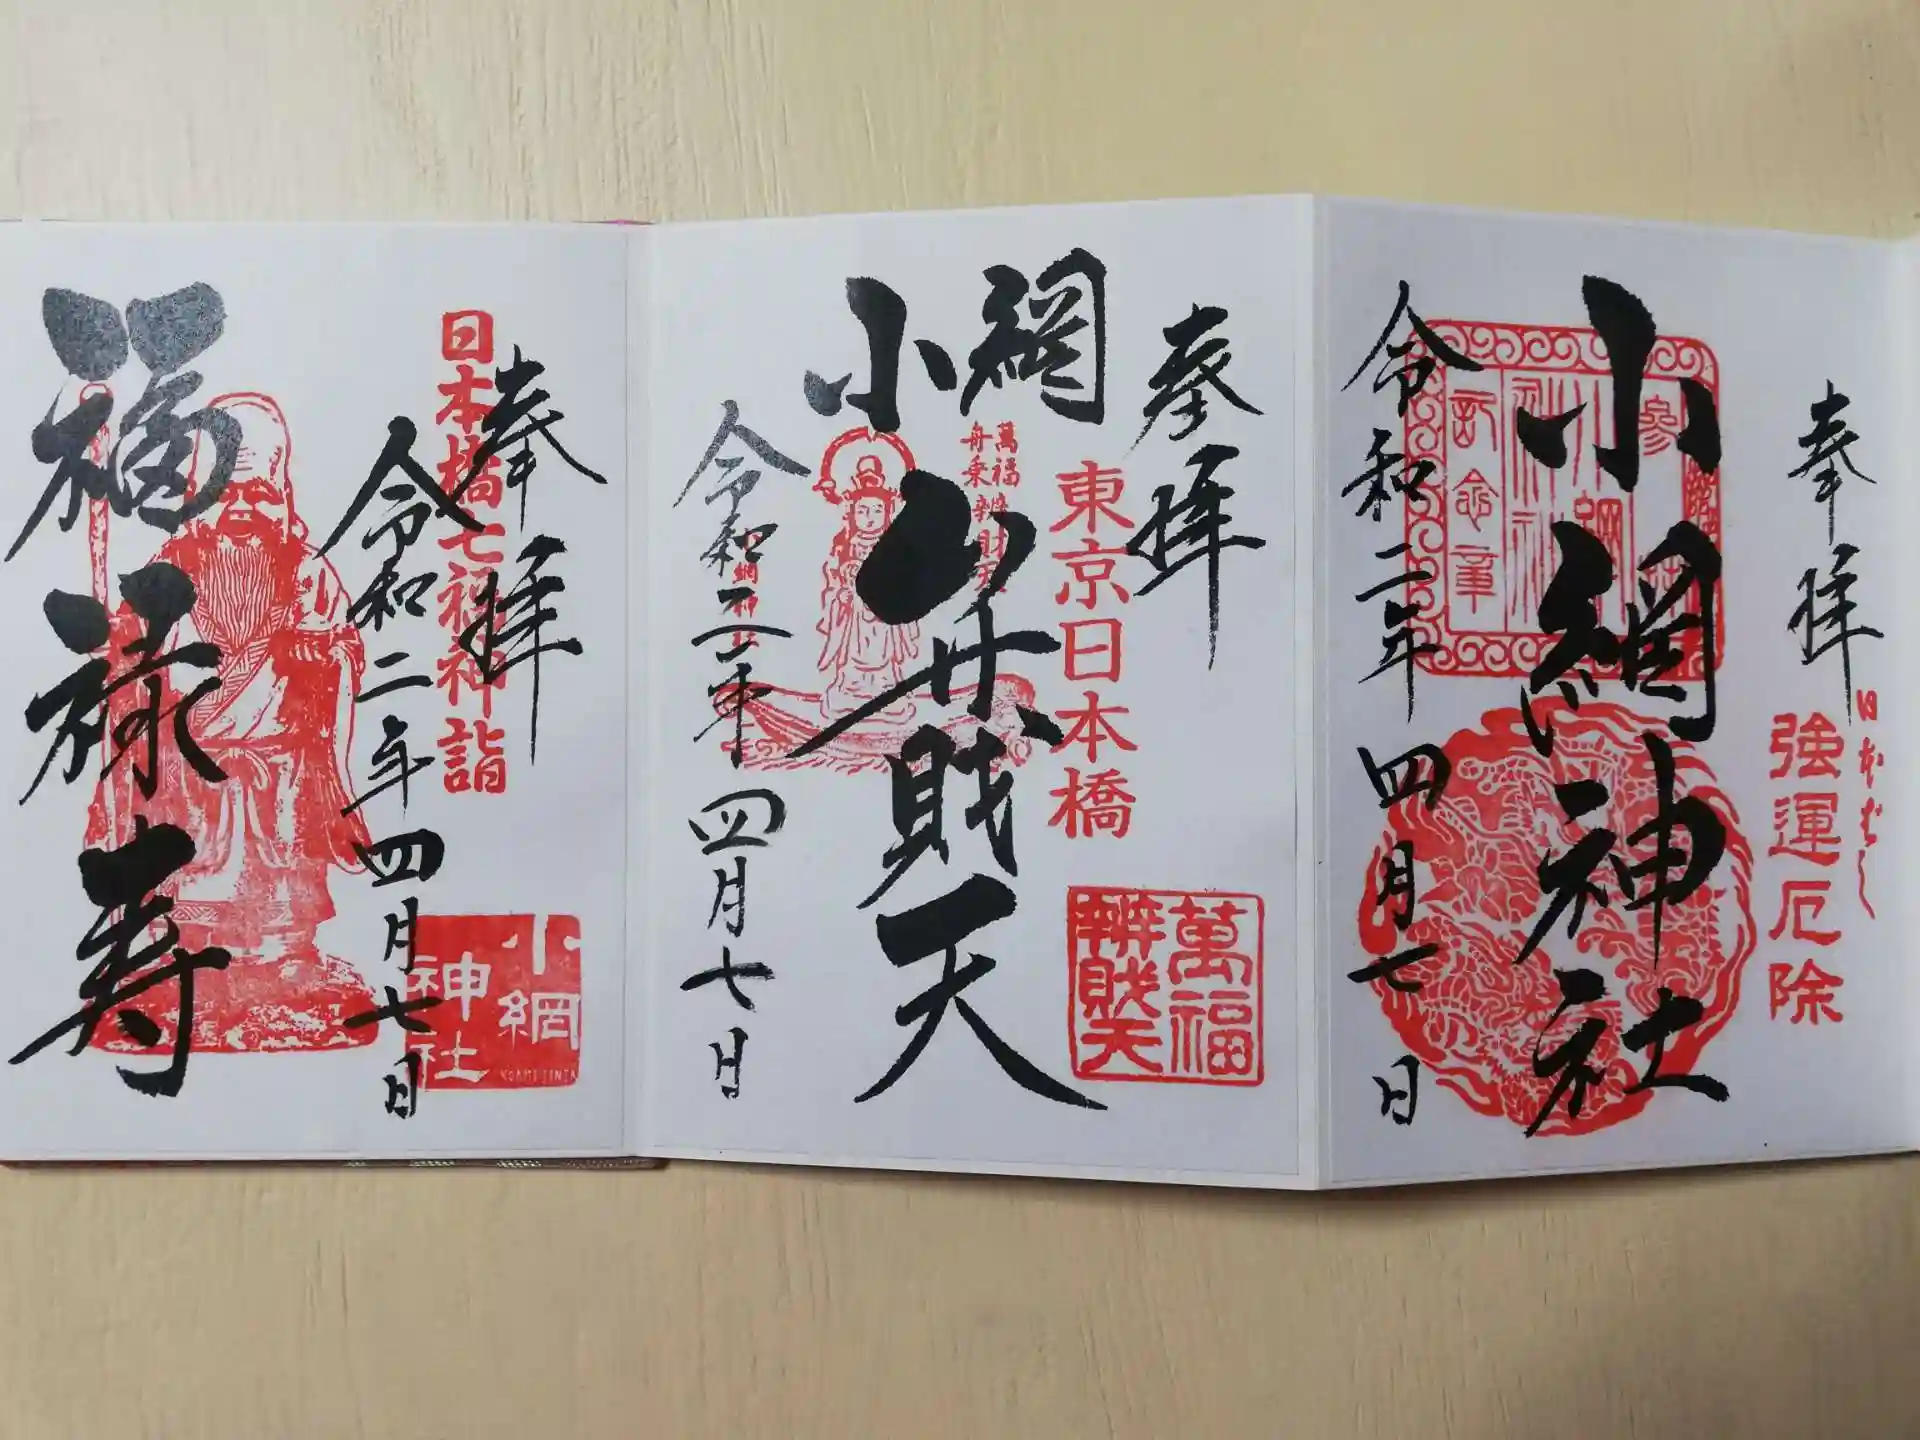 奉拝
日本ばし
強運厄除
小網神社
令和二年四月七日
奉拝
東京日本橋
萬福
舟乗弁財天
小網
弁財天
萬福
辨財天
令和二年四月七日
奉拝
日本橋七福神詣
令和二年四月七日
福禄寿
小網
神社
KOAMI JINJA